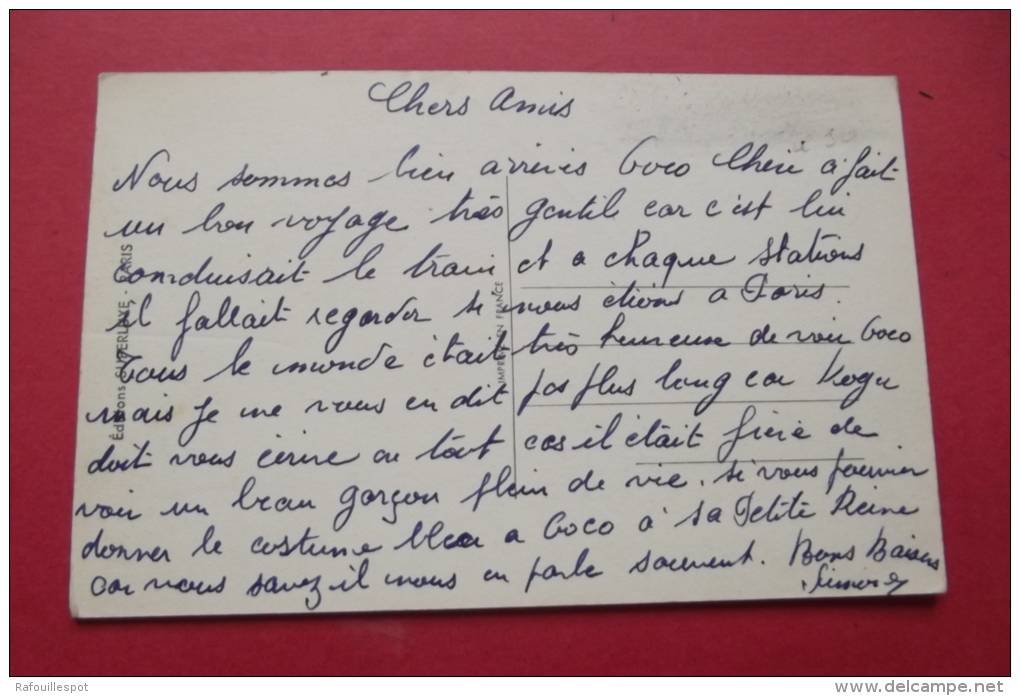 Chers Amis
Nous sommes bien arrivés Coco Chéri a fait
un bon voyage très gentil car c'est lui
conduisait le train et a chaque stations
il fallait regarder si nous étions a Paris.
Tous le monde était très heureuse de voir Coco
mais je ne vous en dit pas plus long car
doit vous écrire en tout cas il était fière de
voir un beau garçon plein de vie. si vous pouvier
donner le costume bleu a Coco à sa Petite Reine
car vous savez il nous en parle souvent. Bons Baisers
Simone
Éditions SUPERLUXE - PARIS
IMPRIMÉ EN FRANCE
Rafouillespot
www.delcampe.net